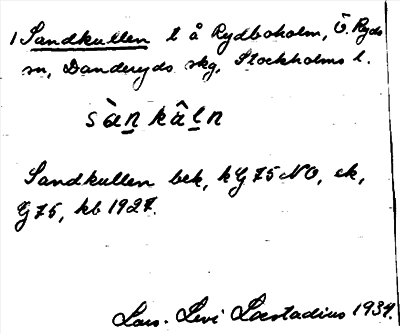 1 Sandkullen t å Rydboholm, Ö. Ryds
sn, Danderyds skg, Stockholms l.
sàn kâln
Sandkullen bek, kG 75 NO, ek,
G 75, kb 1927.
Lars-Levi Læstadius 1934.